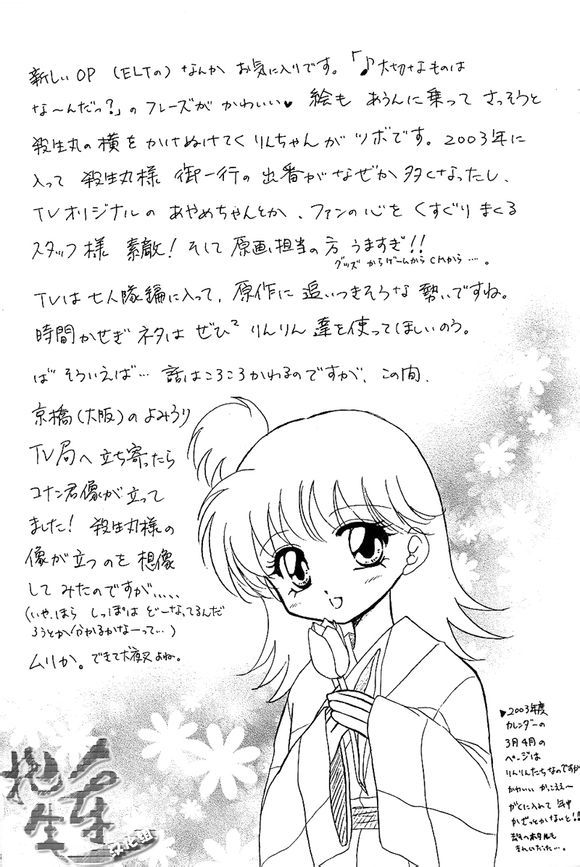 新しいOP (ELTの) なんか お気に入りです。「♪大切なものは
な〜んだっ?」のフレーズが かわいい♥ 絵も あうんに乗って さっそうと
殺生丸の横を かけぬけてく りんちゃんが ツボです。2003年に
入って 殺生丸様 御一行の 出番がなぜか 多くなったし、
TVオリジナルの あやめちゃんとか、ファンの心を くすぐりまくる
スタッフ様 素敵! そして 原画担当の方 うますぎ!!
グッズ からゲームから CMから…。
TVは七人隊編に入って、原作に 追いつきそうな 勢いですね。
時間かせぎ ネタは ぜひ² りんりん 達を使ってほしいのう。
ば そういえば… 話はころころかわるのですが、この間、
京橋(大阪)の よみうり
TV局へ 立ち寄ったら
コナン君像が立って
ました! 殺生丸様の
像が立つのを 想像
して みたのですが.....
(いや、ほら しっぽは どーなってるんだ
ろうとか分かるかなーって…)
ムリか。できて犬夜叉よね。
▶2003年度
カレンダーの
3月4月の
ページは
りんりんたちなのですが
かわいい かっこええ〜
がくに入れて 年中
かざっとかないと!!